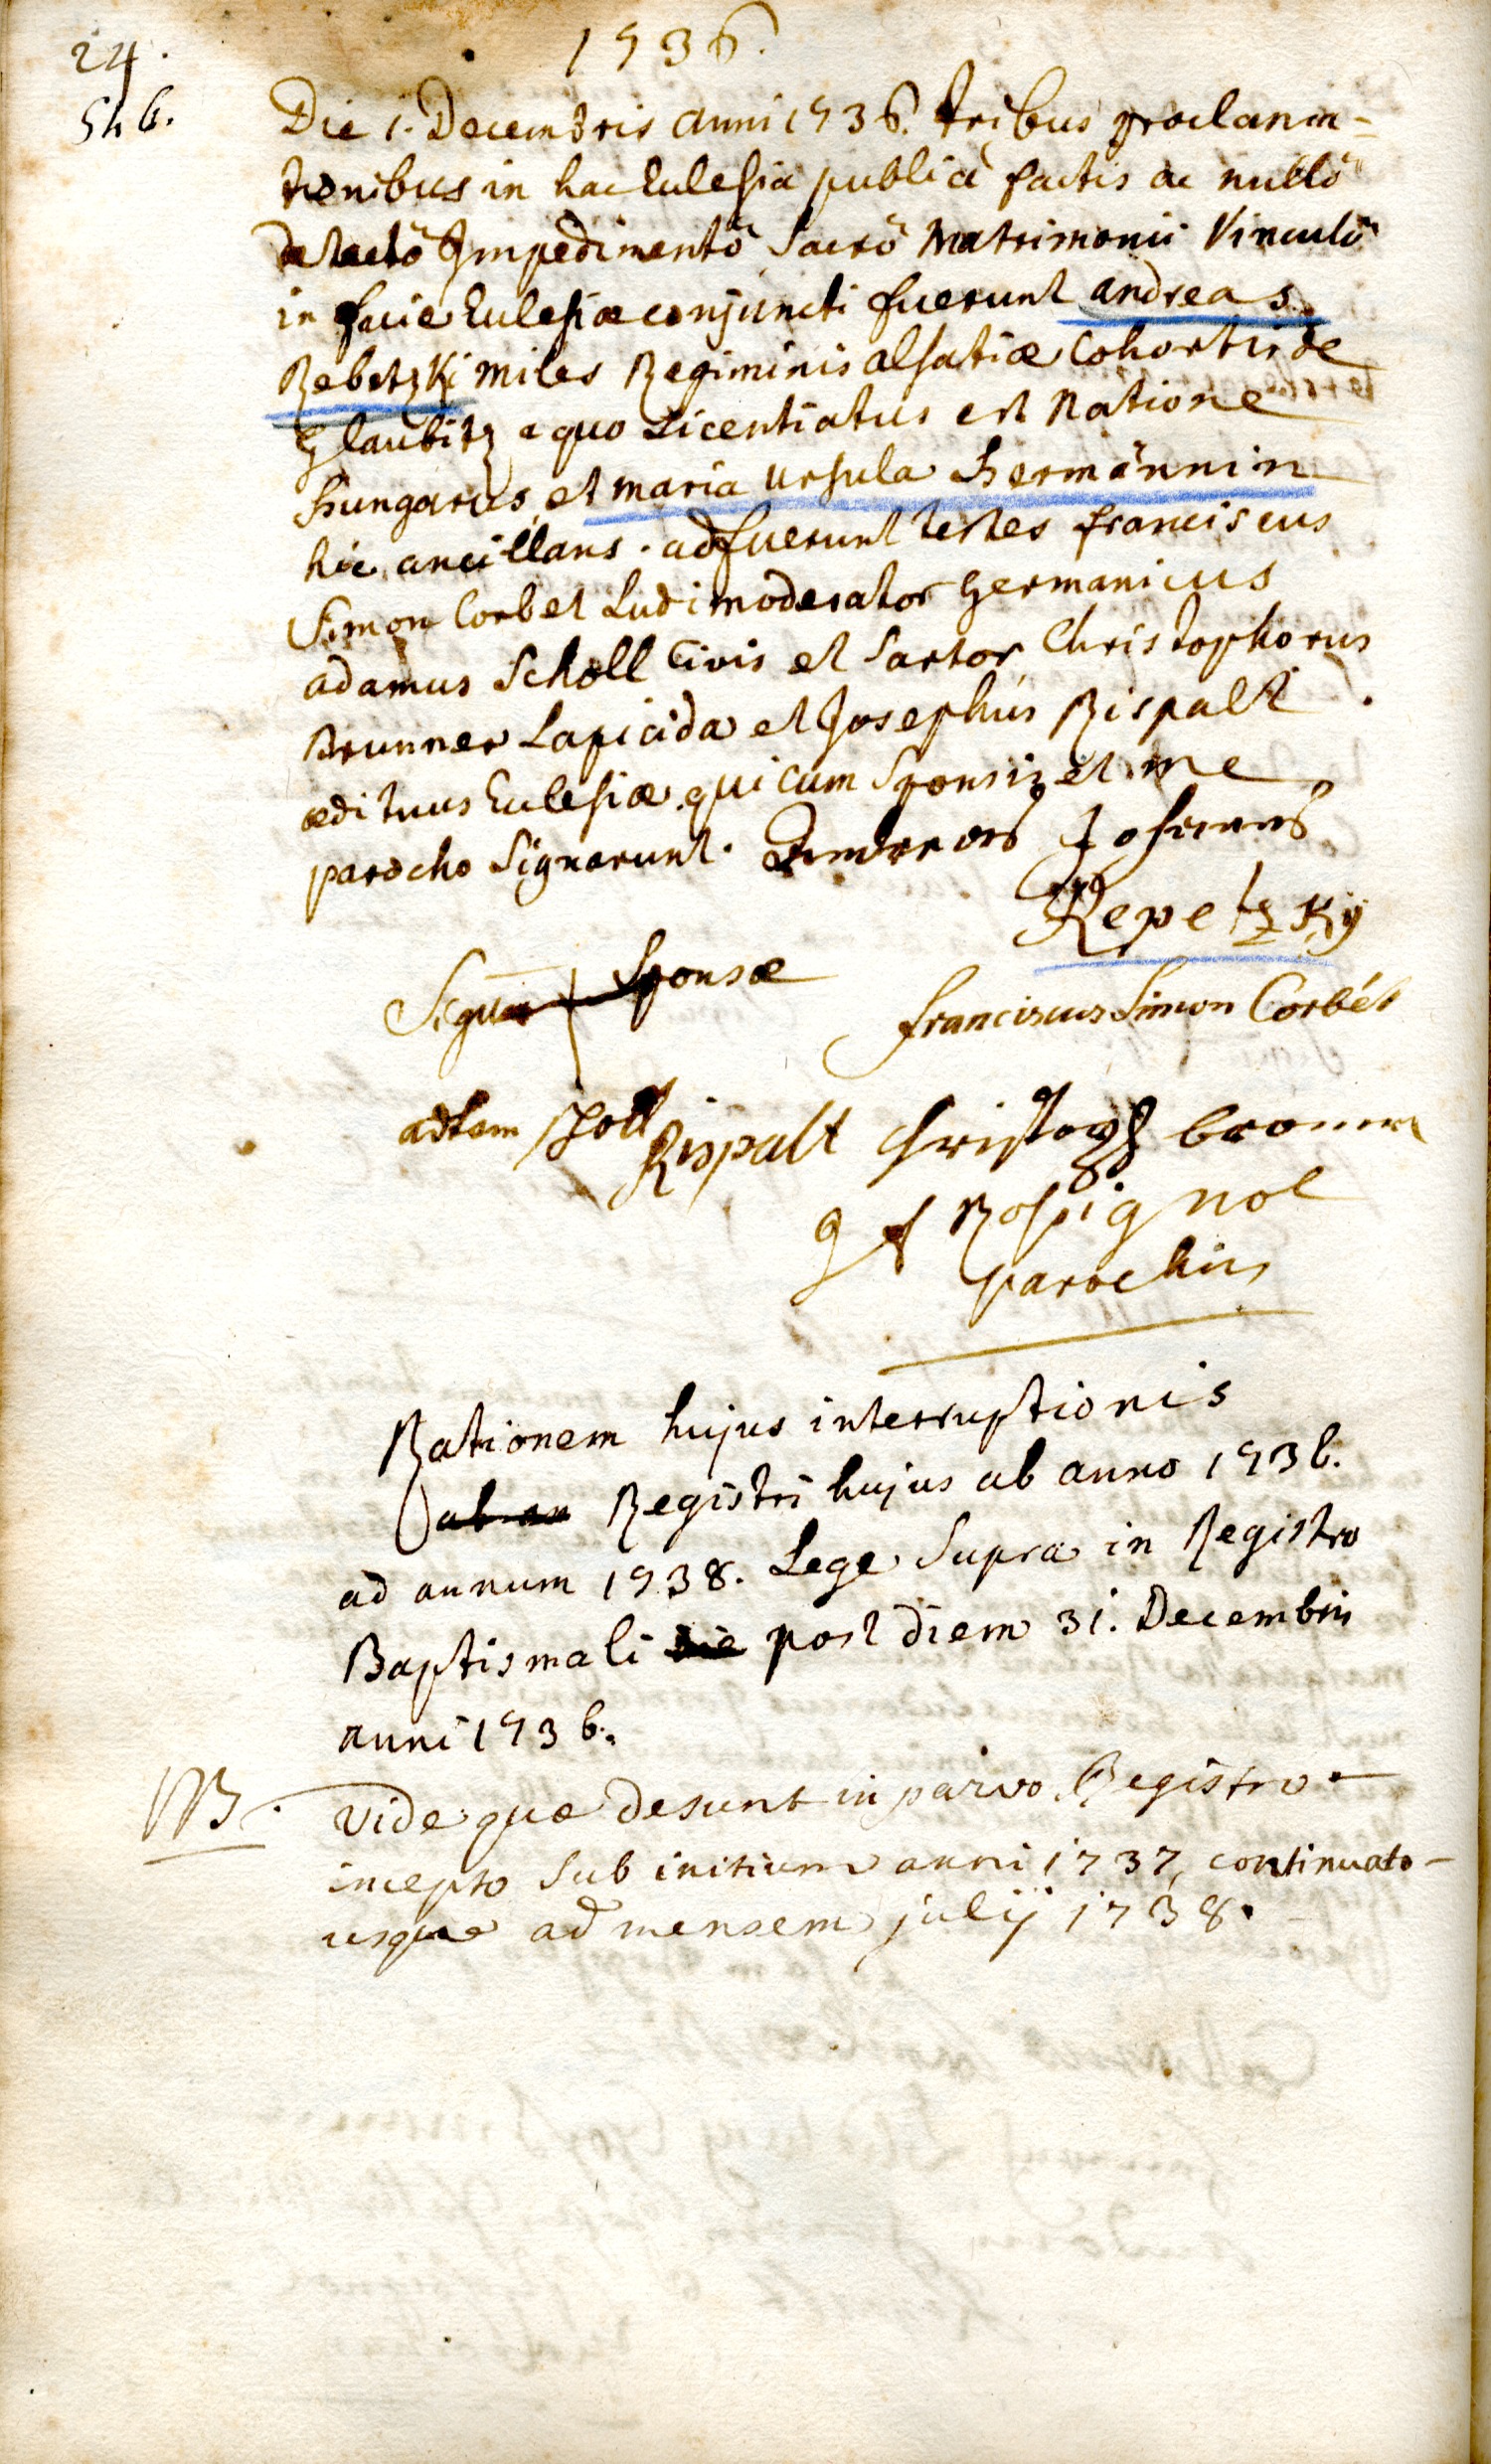 24.
546.
1736.
Die 1. Decembris anni 1736. tribus proclama-
tionibus in hac Eulesia publicè factis ac nullô
detectô Impedimentô Sacrô Matrimonii Vinculô
in facie Eulesiæ conjuncti fuerunt andreas
Rebetzki miles Regiminis alsatiæ Cohortis de
Glaubitz a quo Licentiatus est Natione
hungarus, et maria ursula hermännin
hic ancillans. adfuerunt testes franciscus
Simon Corbet Ludimoderator Germanicus
adamus Scholl Civis et Sartor Christophorus
Brunner Lapicida et Josephus Rispalt
ædituus Eulesiæ qui cum Sponsis et me
parocho Signarunt. Andreas Johannes
Repetzky
Signum + Sponsæ
franciscus Simon Corbét
adam scholl Rispalt christoph bronner
Rossignol
parochus
Rationem hujus interruptionis
Registri hujus ab anno 1736.
ad annum 1738. Lege Supra in Registro
Baptismali post diem 31. Decembris
anni 1736.
NB. Vide quæ desunt in parvo Registro
incepto Sub initium anni 1737, continuato
usque ad mensem julij 1738.